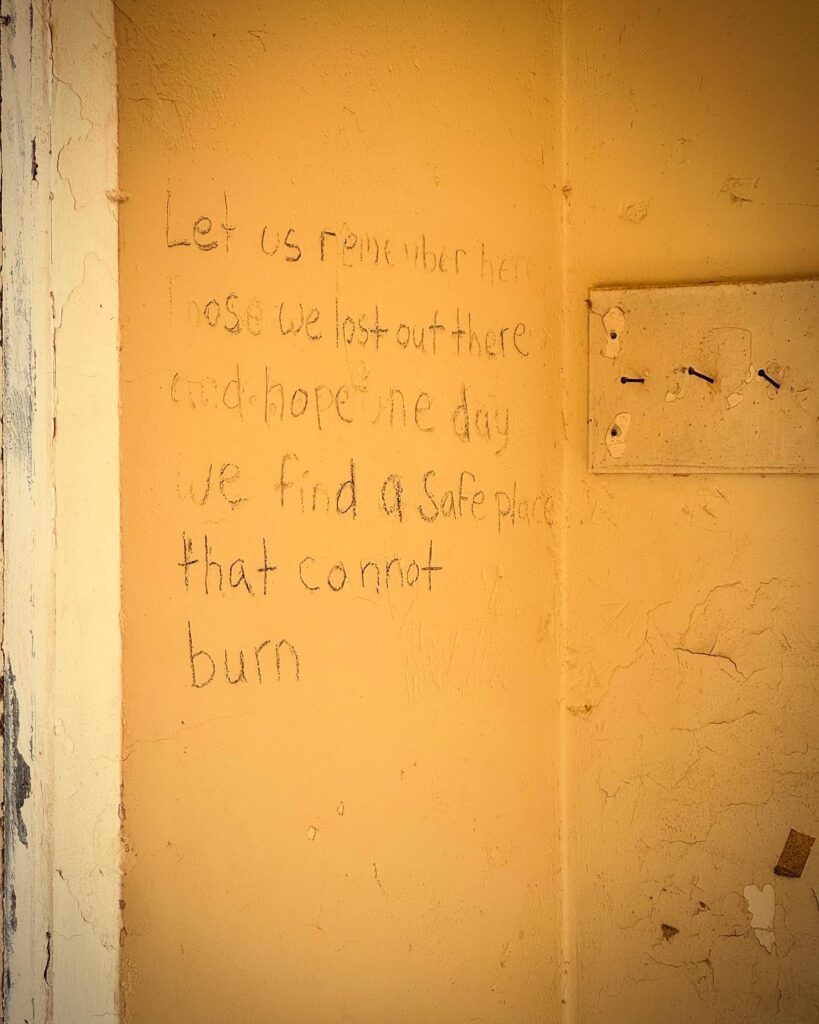 Let us remember here
those we lost out there
and hope one day
we find a safe place
that connot
burn